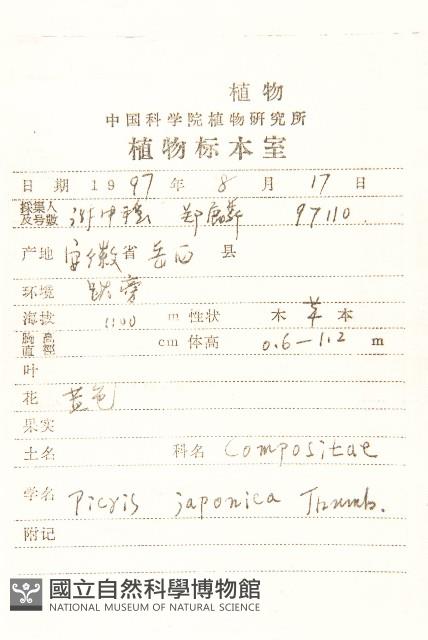 植物
中国科学院植物研究所
植物标本室
日期 1997 年 8 月 17 日
採集人及号數 郑 97110.
产地 安徽省 岳西 县
环境 路旁
海拔 1100 m 性状 木 草 本
胸高直徑 cm 体高 0.6—1.2 m
叶
花 黄色
果实
土名 科名 Compositae
学名 Picris japonica Thunb.
附记
國立自然科學博物館
NATIONAL MUSEUM OF NATURAL SCIENCE